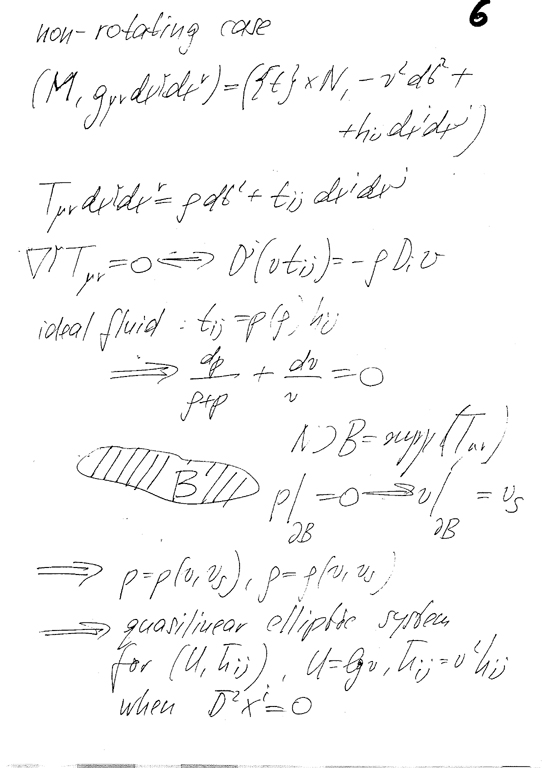 6
non-rotating case
(M, g_μν dx^μ dx^ν) = ({t} × N, -v² dt² +
+ h_ij dx^i dx^j)
T_μν dx^μ dx^ν = ρ dt² + t_ij dx^i dx^j
∇^μ T_μν = 0 ⟺ D^j(v t_ij) = -ρ D_i v
ideal fluid : t_ij = p(ρ) h_ij
⟹ dp/(ρ+p) + dv/v = 0
N ⊃ B = supp(T_μν)
B p|_∂B = 0 ⟶ v|_∂B = v_s
⟹ p = p(v, v_s), ρ = ρ(v, v_s)
⟹ quasilinear elliptic system
for (U, h̄_ij), U = lg v, h̄_ij = v² h_ij
when D̄² x^i = 0